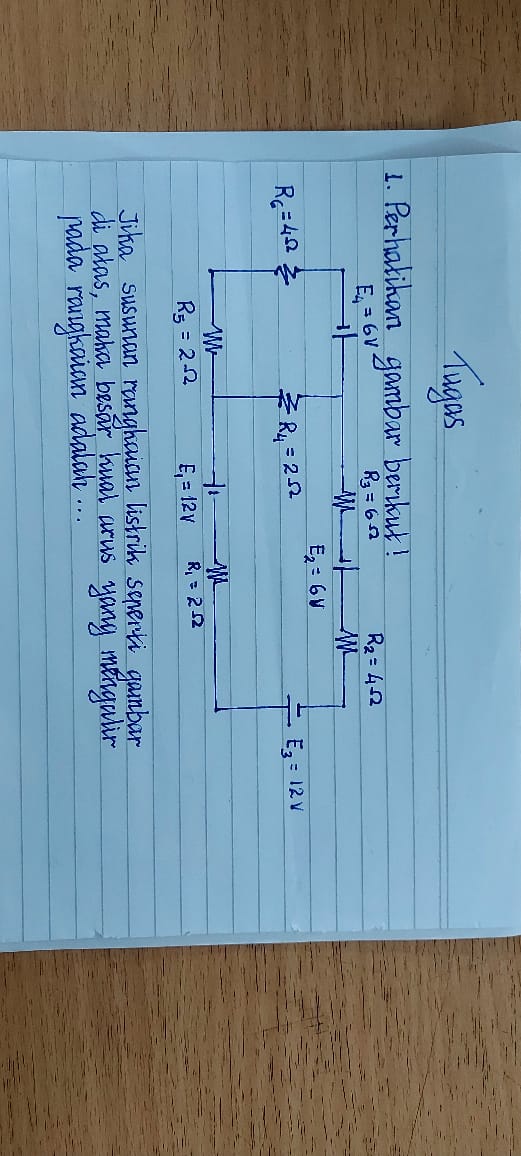 Tugas
1. Perhatikan gambar berikut!
E₄ = 6V
R₃ = 6Ω
R₂ = 4Ω
E₂ = 6V
R₆ = 4Ω
R₄ = 2Ω
E₃ = 12V
R₅ = 2Ω
E₁ = 12V
R₁ = 2Ω
Jika susunan rangkaian listrik seperti gambar
di atas, maka besar kuat arus yang mengalir
pada rangkaian adalah ...